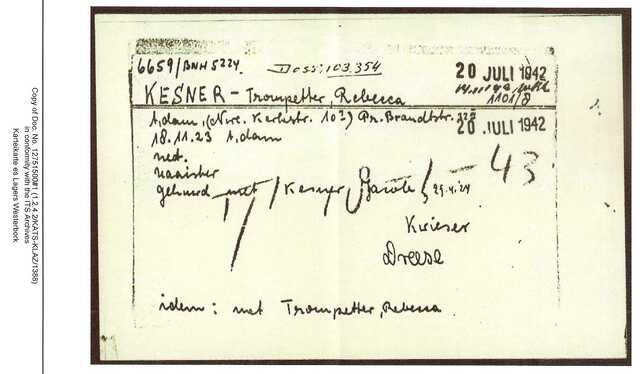 Copy of Doc. No. 12751500#1 (1.2.4.2/KATS-KLAZ/1388)
in conformity with the ITS Archives
Karteikarte es Lagers Westerbork
6659/BNH5224. Doss. 103.354
20 JULI 1942
1101/8
KESNER - Trompetter, Rebecca
A,dam, (Nwe. Kerkstr. 10²) Pr. Brandtstr.
20 JULI 1942
18.11.23 A,dam
ned.
naaister
gehuwd met Kesner, Jacob 29.4.24
43
Kwieser
Dreese
idem: met Trompetter, Rebecca